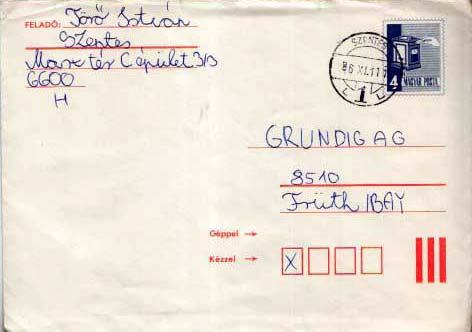 FELADÓ: Törő István
Szentes
Marx tér C épület 3/B
6600
H
SZENTES
86 XI.11
1
4
MAGYAR POSTA
GRUNDIG AG
8510
Früth /BAY
Géppel →
Kézzel →
X